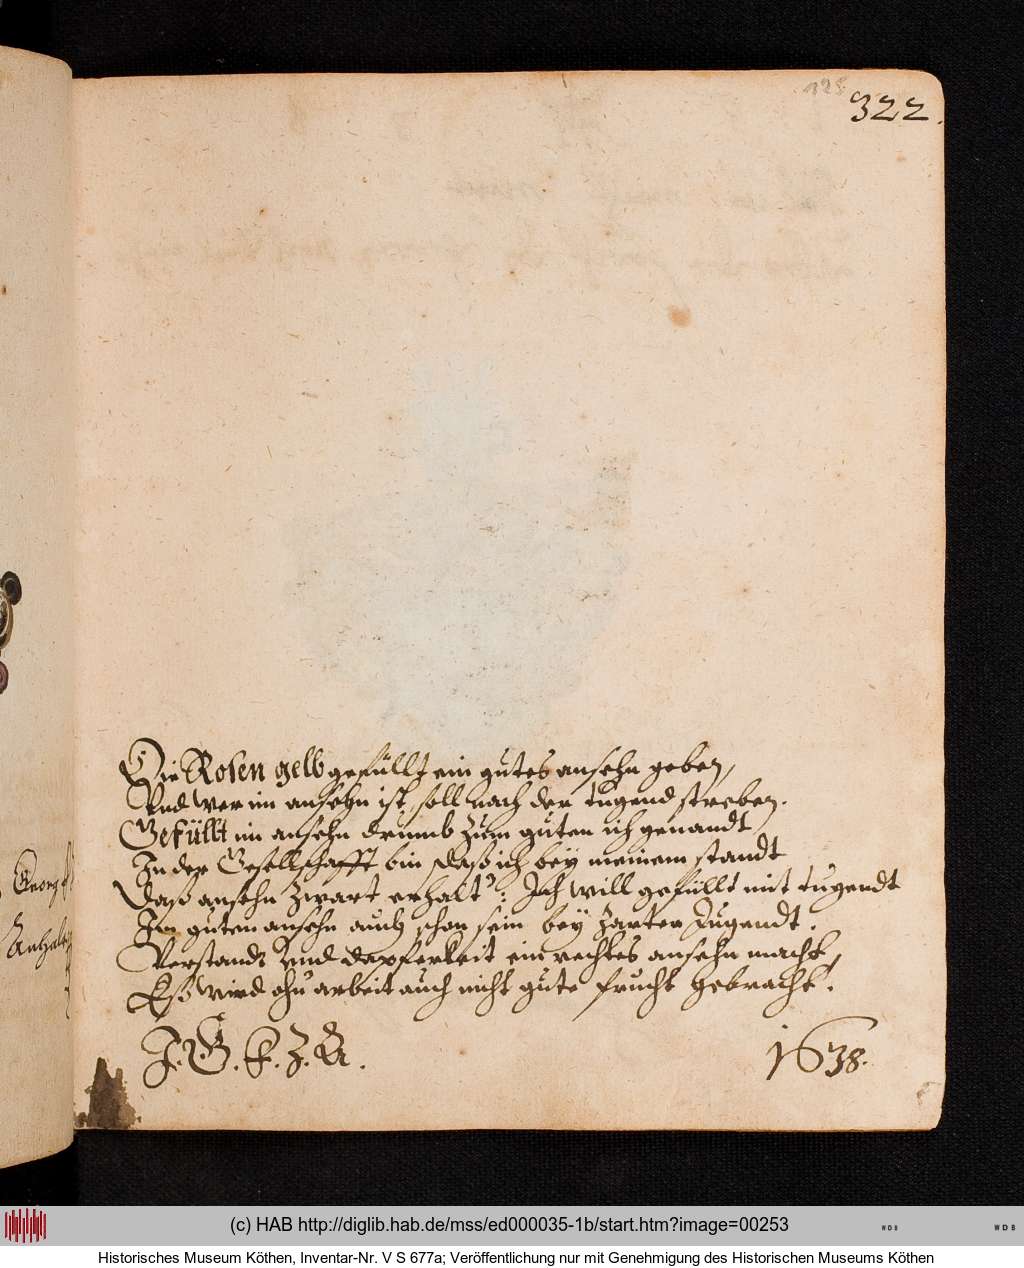 128
322.
Die Rosen gelb gefüllt ein gutes ansehn geben,
Und wer im ansehn ist, soll nach der tugend streben.
Gefüllt im ansehn drumb zum guten ich genandt
In der Gesellschafft bin, daß ich bey meinem standt
Daß ansehn zwart erhalt': Ich will gefüllt mit tugendt
Im guten ansehn auch schon sein bey zarter Jugendt.
Verstandt Und dapferkeit ein rechtes ansehn macht,
Eß wird ohn' arbeit auch nicht gute frucht gebracht.
J. G. F. Z. A.
1638.
Georg
Anhalt
(c) HAB http://diglib.hab.de/mss/ed000035-1b/start.htm?image=00253
WDB
WDB
Historisches Museum Köthen, Inventar-Nr. V S 677a; Veröffentlichung nur mit Genehmigung des Historischen Museums Köthen